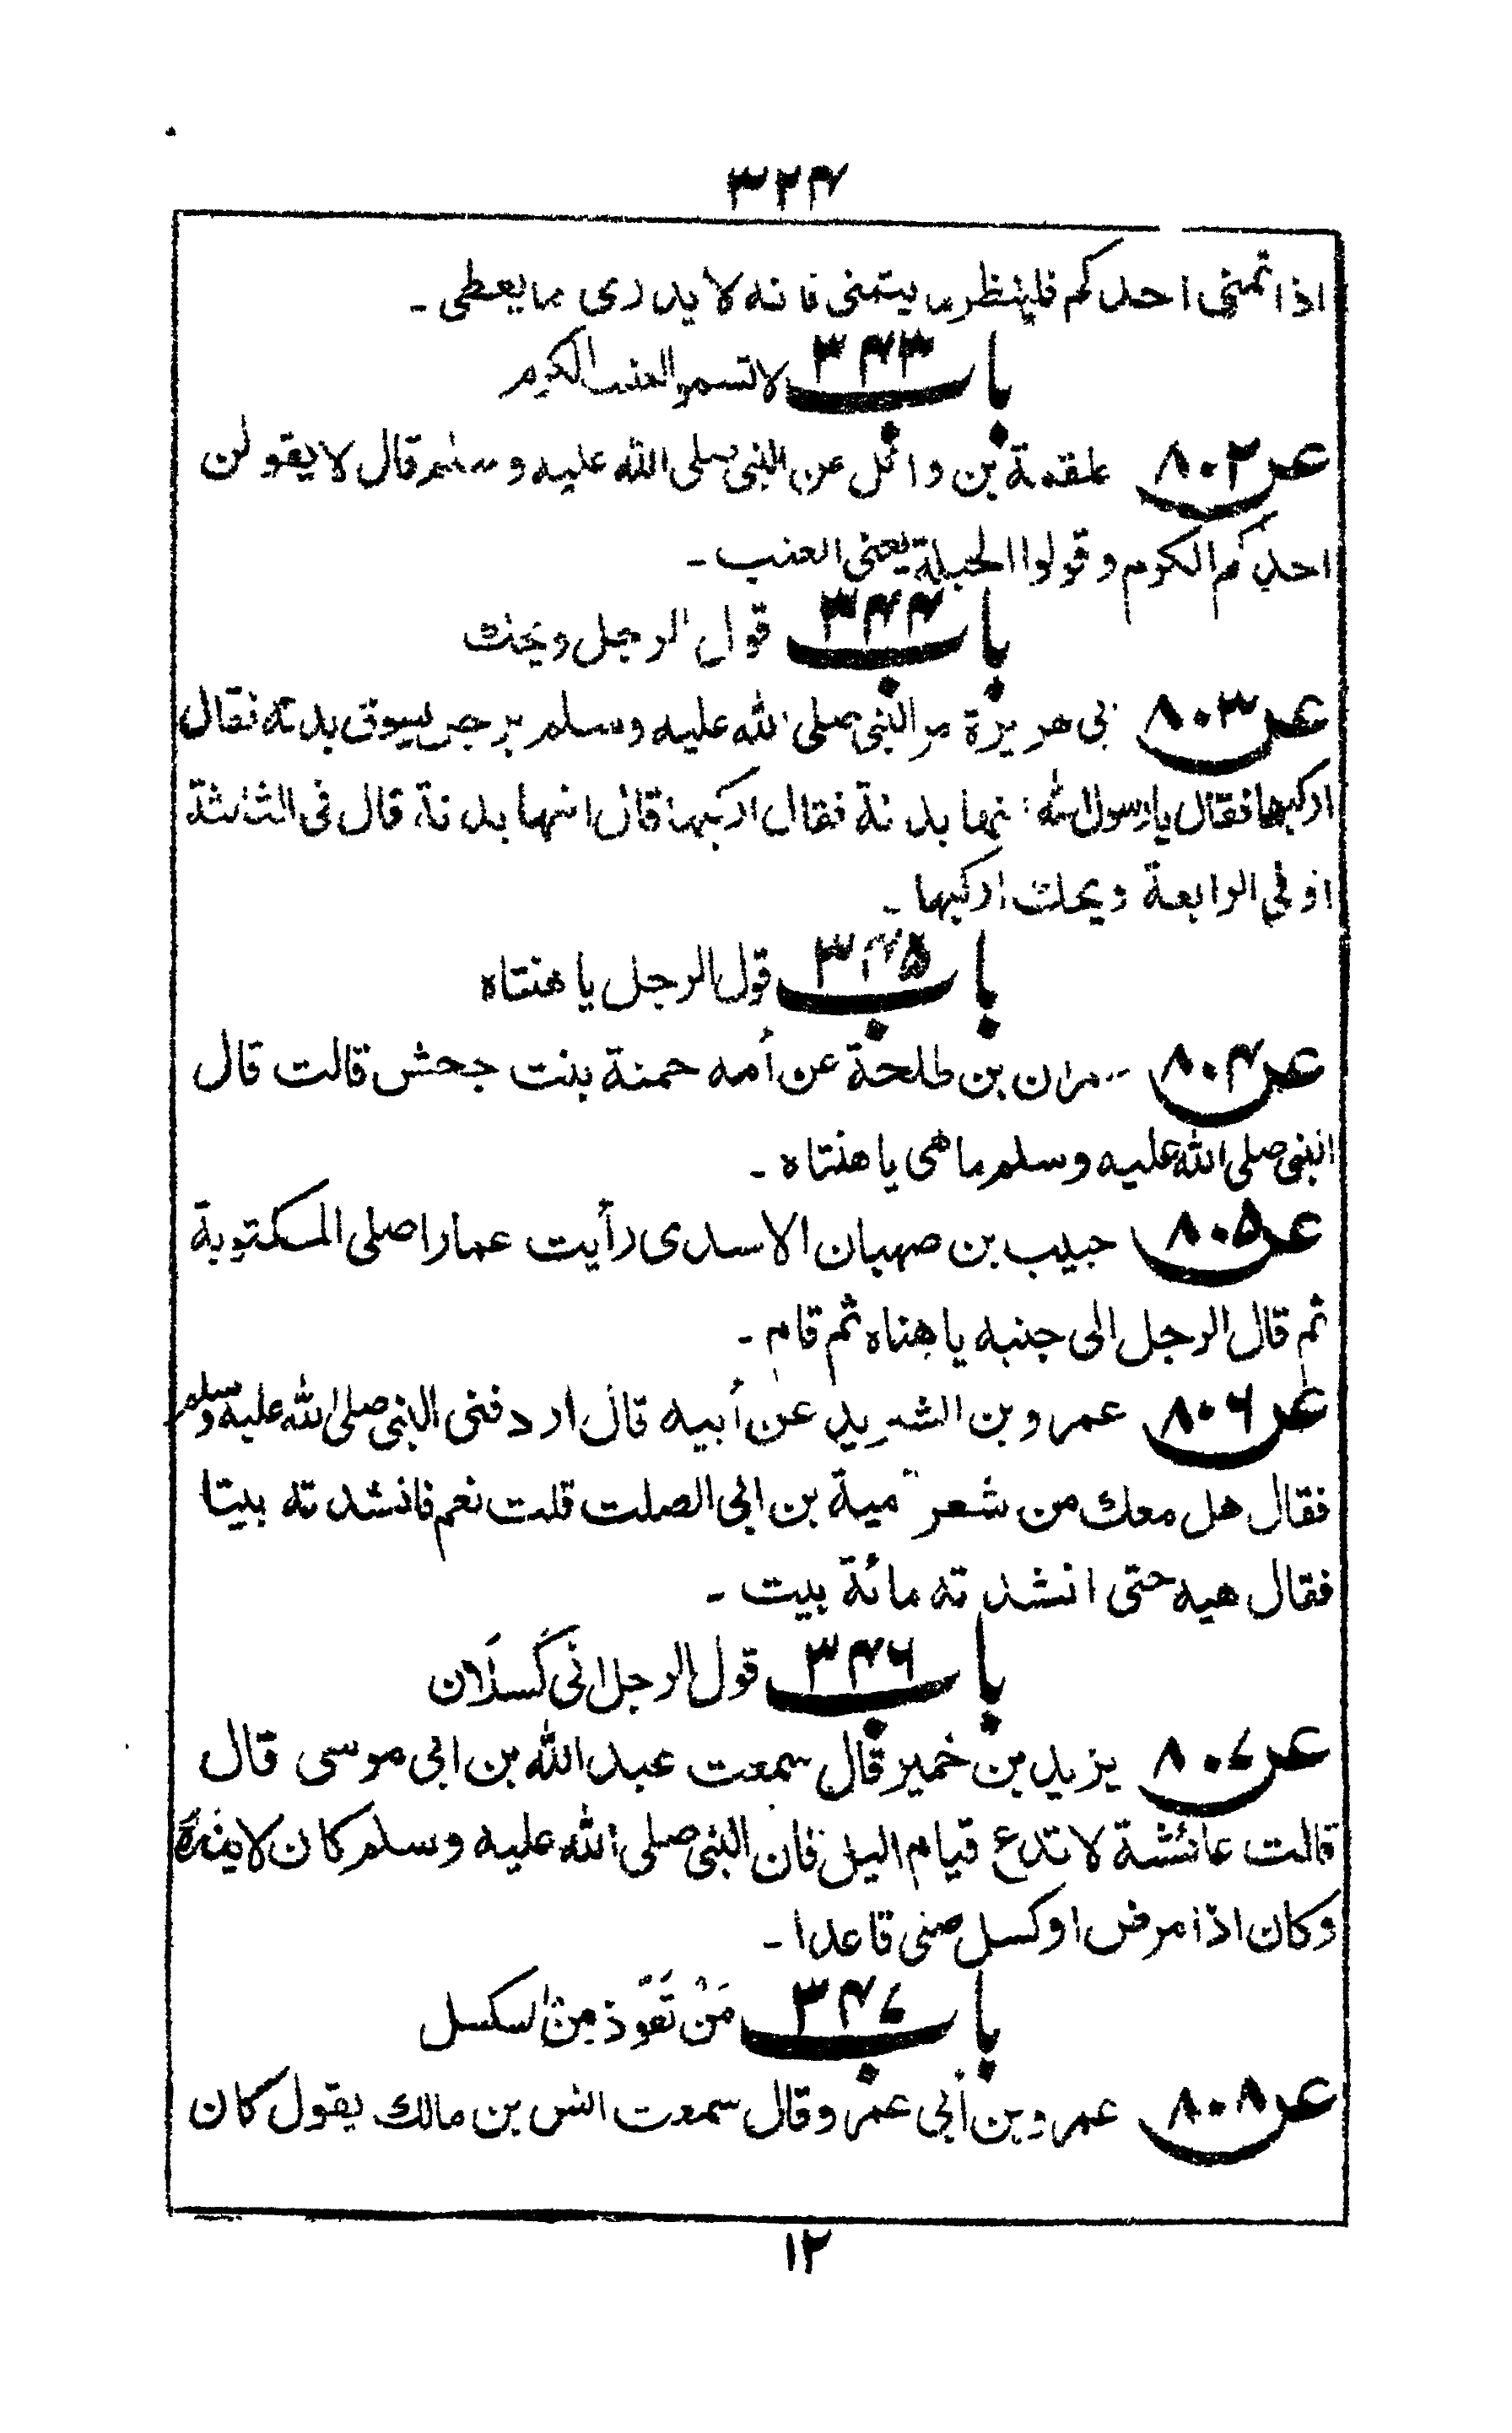 ۳۲۴
اذا تمنى احدكم فلينظر ما يتمنى فانه لا يدرى ما يعطى ـ
باب ۳۴۳ لا تسموا العنب الكرم
عن ۸۰۲ علقمة بن وائل عن النبى صلى الله عليه وسلم قال لا يقولن
احدكم الكرم وقولوا الحبلة يعنى العنب ـ
باب ۳۴۴ قول الرجل ويحك
عن ۸۰۳ ابى هريرة مر النبى صلى الله عليه وسلم برجل يسوق بدنة فقال
اركبها فقال يا رسول الله انها بدنة فقال اركبها قال انها بدنة قال فى الثالثة
او فى الرابعة ويحك اركبها ـ
باب ۳۴۵ قول الرجل يا هنتاه
عن ۸۰۴ عمران بن طلحة عن أمه حمنة بنت جحش قالت قال
النبى صلى الله عليه وسلم ما هى يا هنتاه ـ
عن ۸۰۵ حبيب بن صهبان الاسدى رأيت عمارا صلى المكتوبة
ثم قال الرجل الى جنبه يا هناه ثم قام ـ
عن ۸۰۶ عمرو بن الشريد عن أبيه قال اردفنى النبى صلى الله عليه وسلم
فقال هل معك من شعر امية بن ابى الصلت قلت نعم فانشدته بيتا
فقال هيه حتى انشدته مائة بيت ـ
باب ۳۴۶ قول الرجل انى كَسلَان
عن ۸۰۷ يزيد بن خمير قال سمعت عبد الله بن ابى موسى قال
قالت عائشة لا تدع قيام اليل فان النبى صلى الله عليه وسلم كان لا يذره
وكان اذا مرض او كسل صلى قاعدا ـ
باب ۳۴۷ مَنْ تَعَوّذ مِنَ الكسل
عن ۸۰۸ عمرو بن أبى عمرو قال سمعت انس بن مالك يقول كان
۱۲